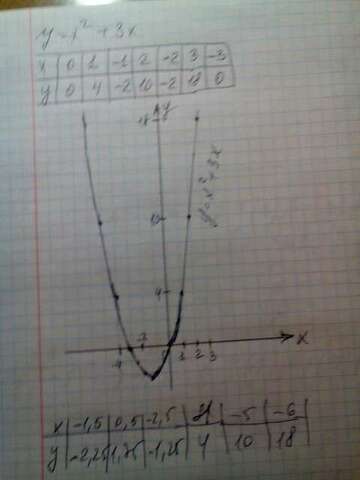 y = x² + 3x
x | 0 | 1 | -1 | 2 | -2 | 3 | -3
y | 0 | 4 | -2 | 10 | -2 | 18 | 0
y
18
y=x²+3x
10
4
-4 1 2 3 x
x | -1,5 | 0,5 | -2,5 | -4 | -5 | -6
y | -2,25 | 1,75 | -1,25 | 4 | 10 | 18